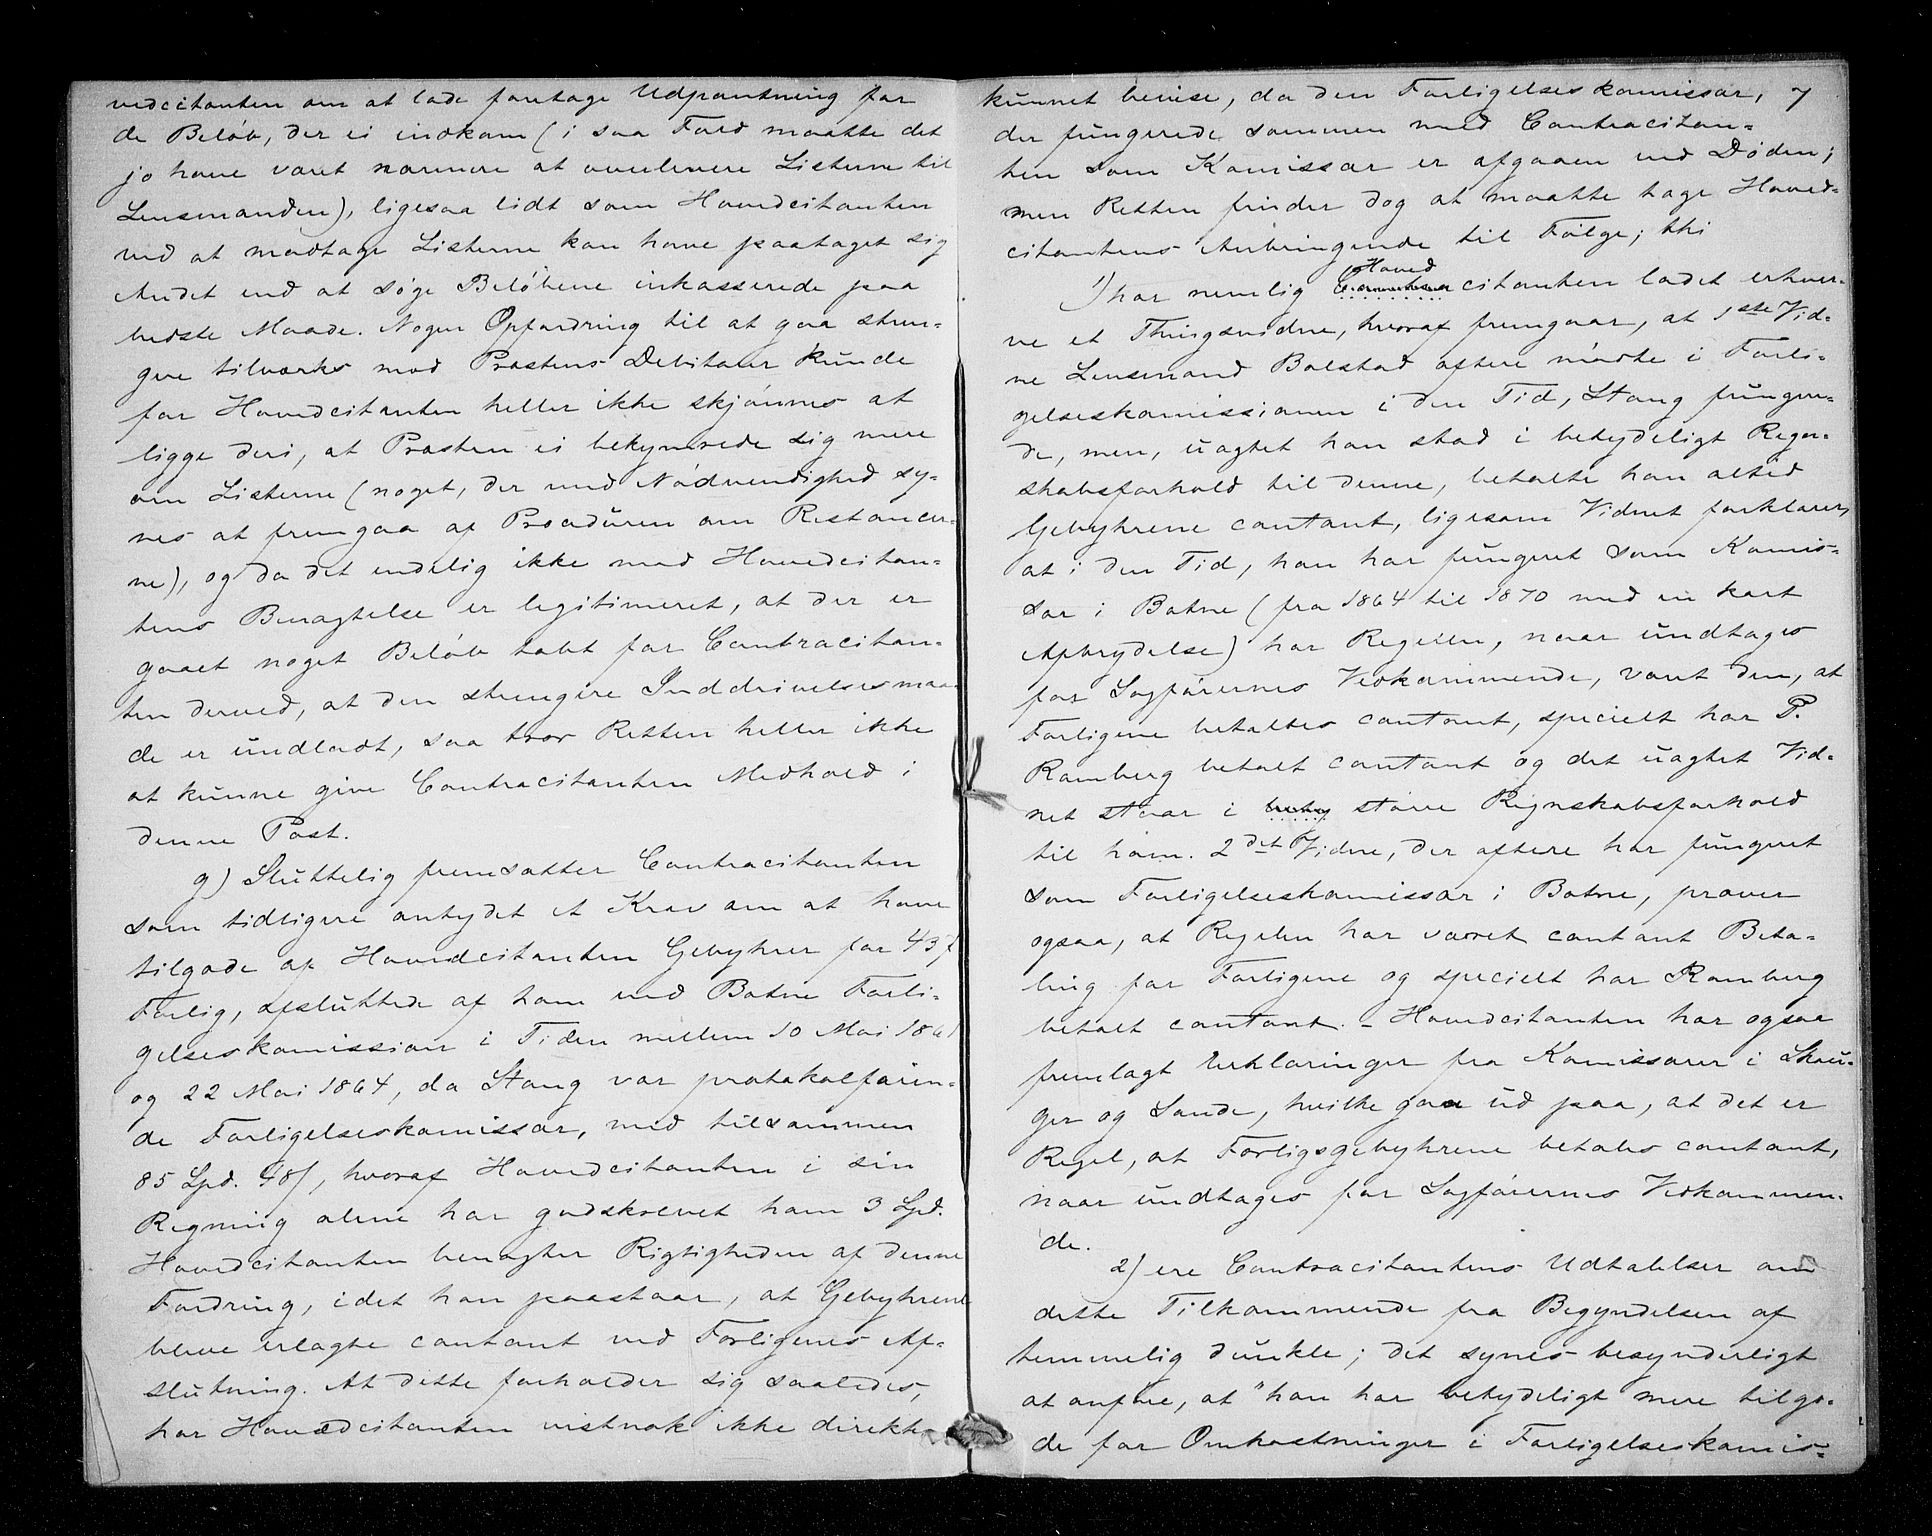 vedcitanten om at lade foretage Udpantning for
de Beløb, der ei indkom (i saa Fald maatte det
jo have været nærmere at overlevere Listerne til
Lensmanden), ligesaa lidt som Hovedcitanten
ved at modtage Listerne kan have paataget sig
Andet end at søge Beløbene inkasserede paa
bedste Maade. Nogen Opfordring til at gaa stren-
gere tilværks mod Præstens Debitorer kunde
for Hovedcitanten heller ikke skjønnes at
ligge deri, at Præsten ei bekymrede sig mere
om Listerne (noget, der med Nødvendighed sy-
nes at fremgaa af Proceduren om Restancer-
ne), og da det endelig ikke mod Hovedcitan-
tens Benægtelse er legitimeret, at der er
gaaet noget Beløb tabt for Contracitan-
ten derved, at den strengere Inddrivelsesmaa-
de er undladt, saa tror Retten heller ikke
at kunne give Contracitanten Medhold i
denne Post.
g) Sluttelig fremsætter Contracitanten
som tidligere antydet et Krav om at have
tilgode af Hovedcitanten Gebyhrer for 437
Forlig, afsluttede af ham ved Botne Forli-
gelseskomission i Tiden mellem 10 Mai 1861
og 22 Mai 1864, da Stang var protokolføren-
de Forligelseskomissær, med tilsammen
85 Spd. 48 ß, hvoraf Hovedcitanten i sin
Regning alene har godskrevet ham 3 Spd.
Hovedcitanten benægter Rigtigheden af denne
Fordring, idet han paastaar, at Gebyhrene
bleve erlagte contant ved Forligenes Af-
slutning. At dette forholder sig saaledes,
har Hovedcitanten vistnok ikke direkte
kunnet bevise, da den Forligelseskomissær, 7
der fungerede sammen med Contracitan-
ten som Komissær er afgaaen ved Døden;
men Retten finder dog at maatte tage Hoved-
citantens Anbringende til Følge; thi
Hoved
1) har nemlig citanten ladet erhver-
ve et Thingsvidne, hvoraf fremgaar, at 1ste Vid-
ne Lensmand Bolstad oftere mødte i Forli-
gelseskomissionen i den Tid, Stang funger-
de, men, uagtet han stod i betydeligt Regn-
skabsforhold til denne, betalte han altid
Gebyhrene contant, ligesom Vidnet forklarer,
at i den Tid, han har fungeret som Komis-
sær i Botne (fra 1864 til 1870 med en kort
Afbrydelse) har Regelen, naar undtages
for Sagførernes Vedkommende, været den, at
Forligene betaltes contant, specielt har P.
Ramberg betalt contant og det uagtet Vid-
net staar i større Regnskabsforhold
til ham. 2det Vidne, der oftere har fungeret
som Forligelseskomissær i Botne, prover
ogsaa, at Regelen har været contant Beta-
ling for Forligene og specielt har Ramberg
betalt contant. - Hovedcitanten har ogsaa
fremlagt Erklæringer fra Komissærer i Skou-
ger og Sande, hvilke gaa ud paa, at det er
Regel, at Forligsgebyhrene betales contant,
naar undtages for Sagførernes Vedkommen-
de.
2) ere Contracitantens Udtalelser om
dette Tilkommende fra Begyndelsen af
temmelig dunkle; det synes besynderligt
at anføre, at "han har betydeligt mere tilgo-
de for Omkostninger i Forligelseskomis-